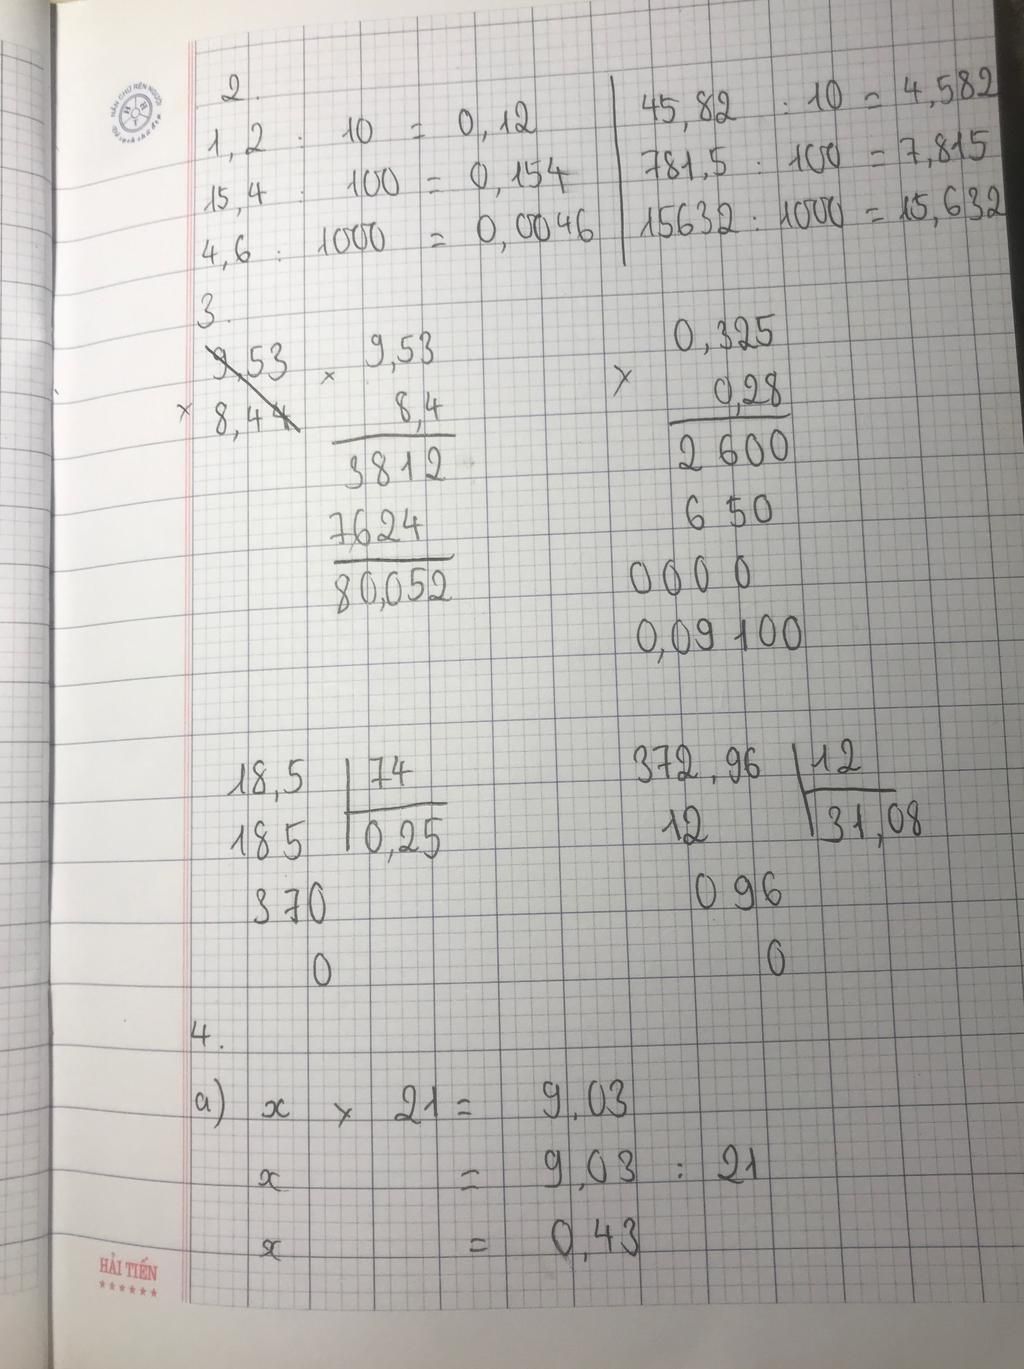 2.
1,2 : 10 = 0,12
15,4 : 100 = 0,154
4,6 : 1000 = 0,0046
45,82 : 10 = 4,582
781,5 : 100 = 7,815
15632 : 1000 = 15,632
3.
9,53
× 8,44
× 9,53
8,4
3812
7624
80,052
0,325
×
0,28
2600
650
0000
0,09100
18,5 | 74
185 | 0,25
370
0
372,96 | 12
12 | 31,08
096
0
4.
a) x × 21 = 9,03
x = 9,03 : 21
x = 0,43
NÉN CHỮ RÈN NGƯỜI
HẢI TIẾN